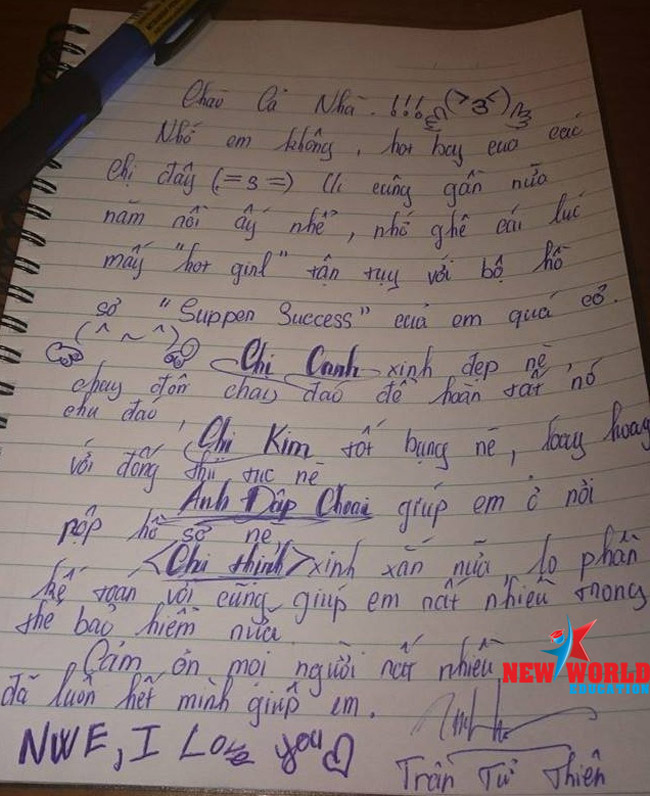 Chào Cả Nhà.!!! (>3<)
Nhớ em không, hot boy của các
chị đây (=3=) Ui cũng gần nửa
năm rồi ấy nhể, nhớ ghê cái lúc
mấy "hot girl" tận tụy với bộ hồ
sơ "Supper Success" của em quá cơ.
(^ ~ ^)
Chị Canh xinh đẹp nè,
chạy đôn chạy đáo để hoàn tất nó
chu đáo,
Chị Kim tốt bụng nè, loay hoay
với đống thủ tục nè
Anh Dập Choai giúp em ở nơi
nộp hồ sơ nè
<Chị Thịnh> xinh xắn nữa, lo phần
kế toán với cũng giúp em rất nhiều trong
thẻ bảo hiểm nữa
Cảm ơn mọi người rất nhiều
đã luôn hết mình giúp em.
NWE, I Love you
Trần Tử Thiên
NEW WORLD
EDUCATION